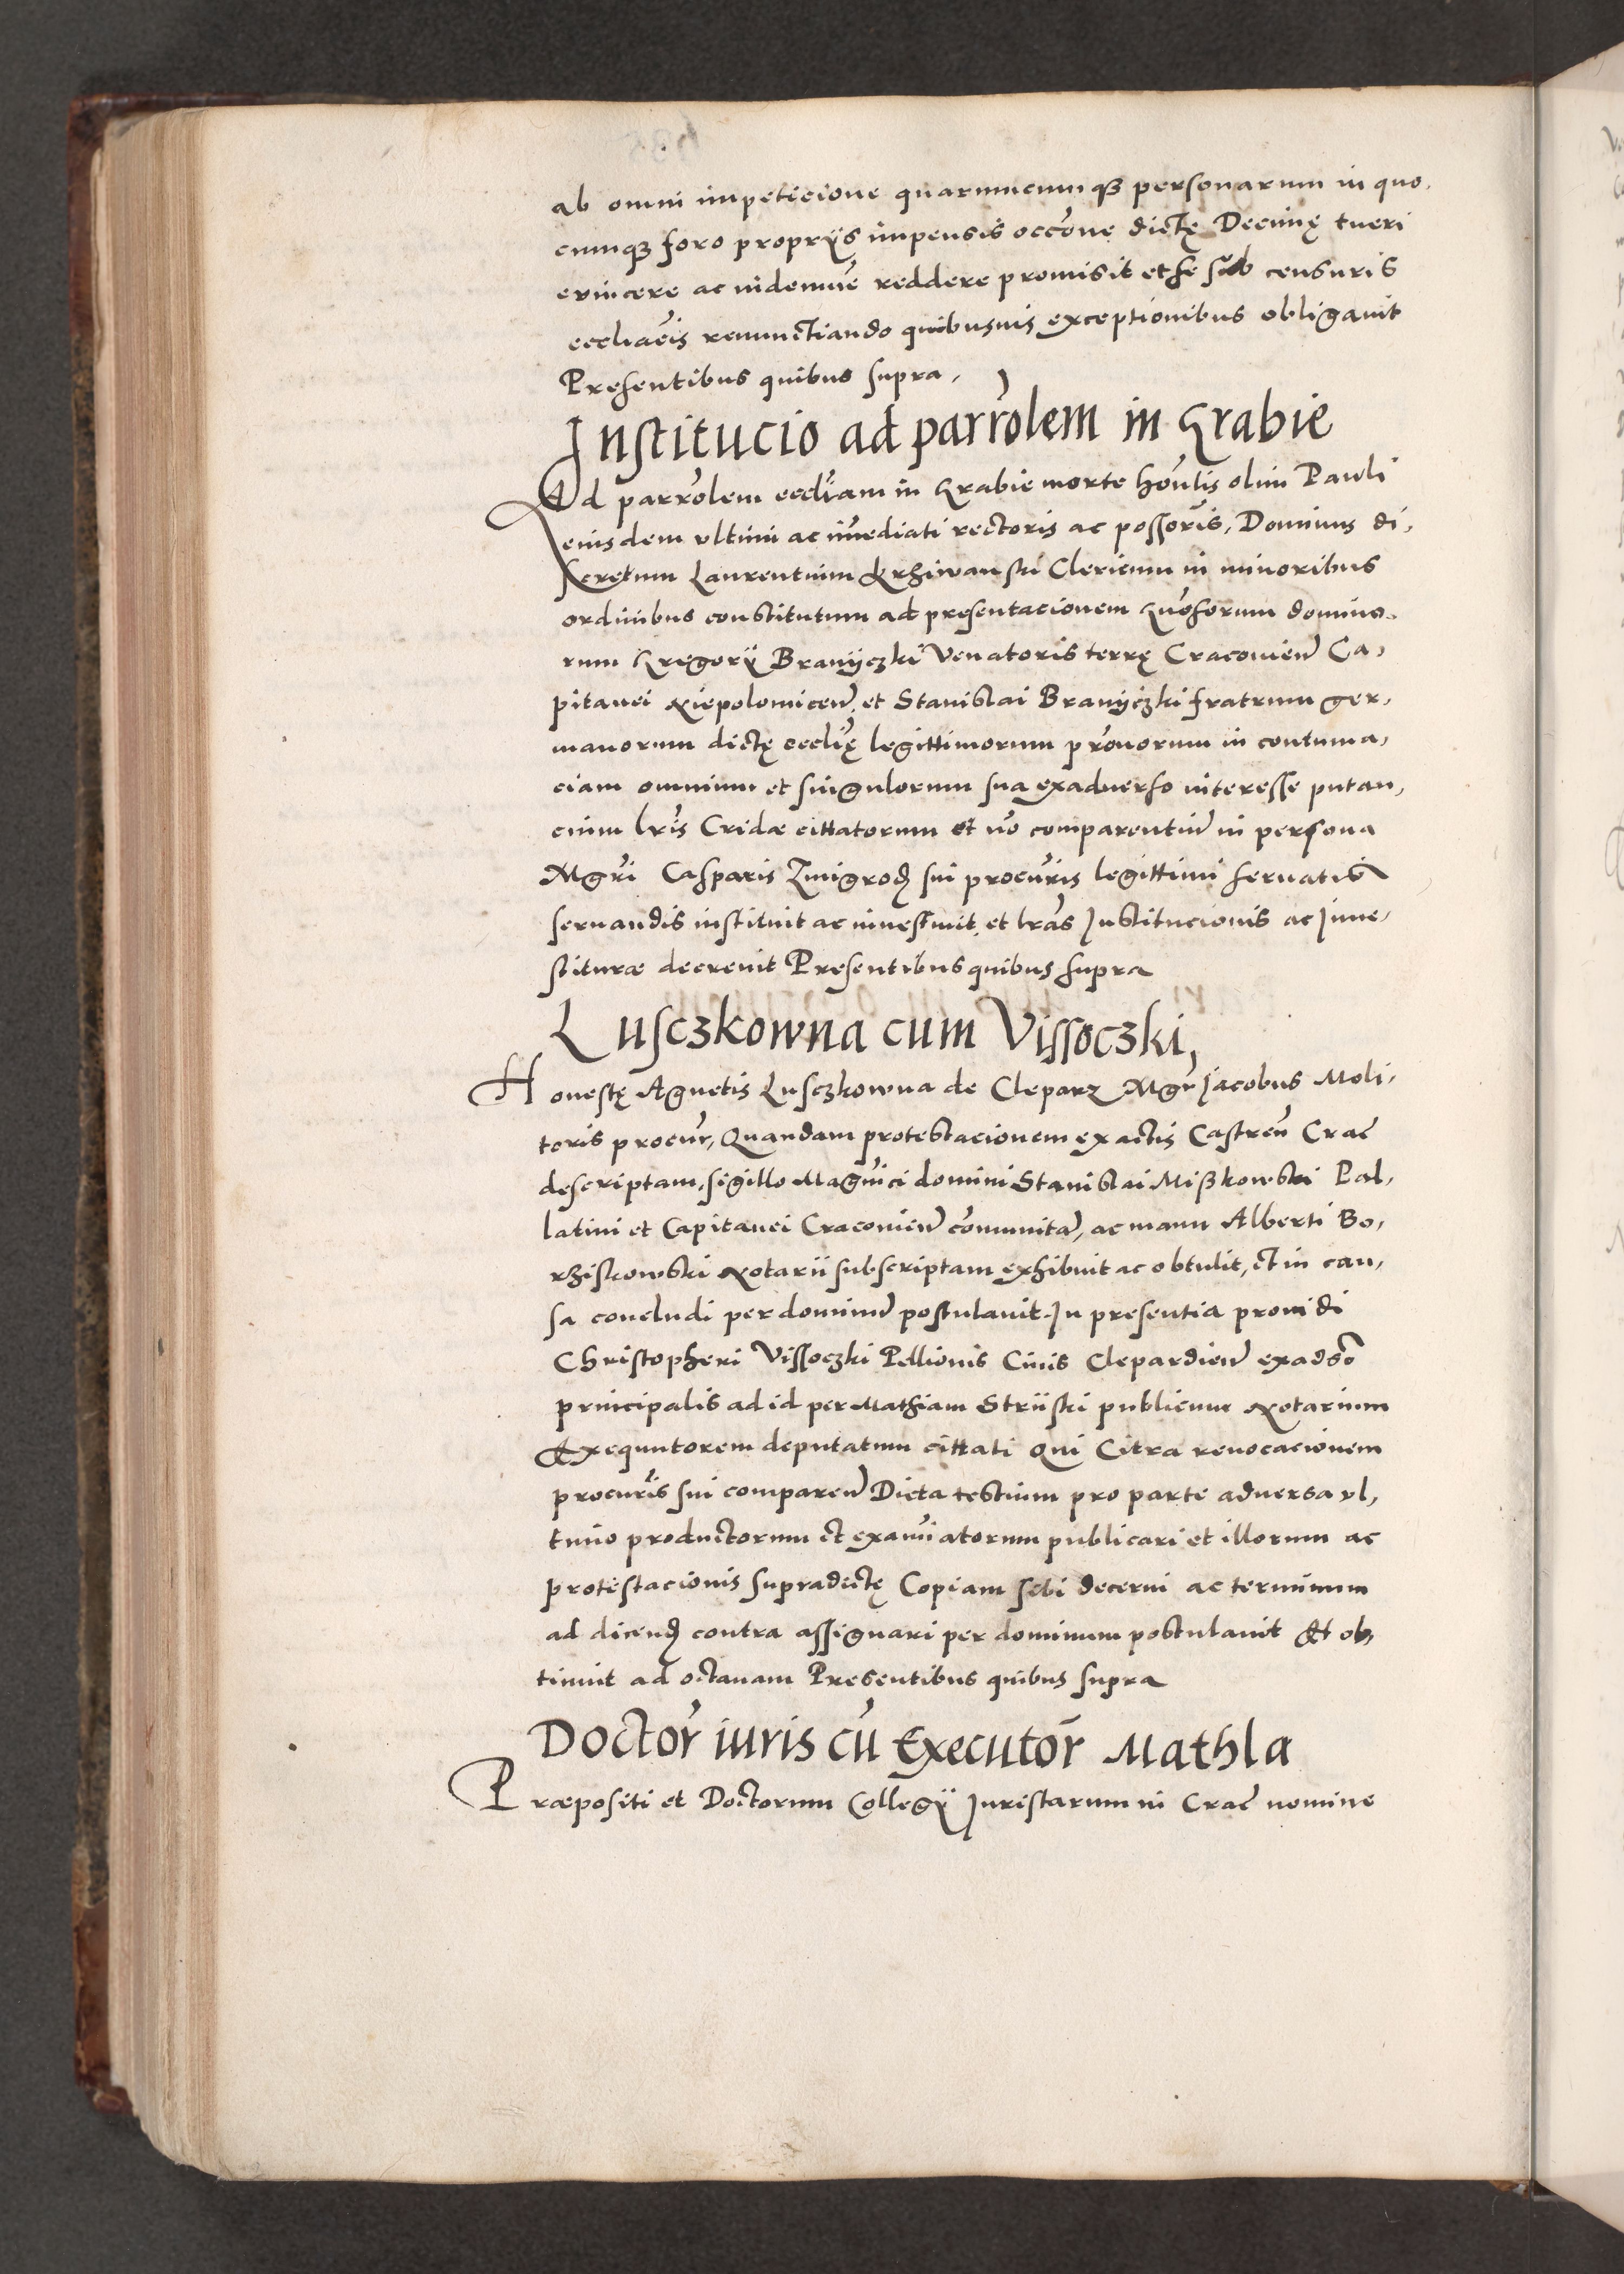 ab omni impeticione quarumcumqȝ personarum in quo,
cumqȝ foro proprijs impensis occone dictę Decimę tueri
evincere ac indemne reddere promisit et se sub censuris
eccliacis renunctiando quibusuis exceptionibus obligauit
Presentibus quibus supra,
Institucio ad parrolem in Grabie
Ad parrolem eccliam in Grabie morte honlis olim Pauli
eiusdem vltimi ac imediati rectoris ac possoris, Dominus di,
scretum Laurentium Krhiwanski Clericum in minoribus
ordinibus constitutum ad presentacionem Gnosorum domino,
rum Gregorij Branijczki Venatoris terrę Cracovien Ca,
pitanei Niepolomicen et Stanislai Branijczki fratrum ger,
manorum dictę ecclię legittimorum pronorum in contuma,
ciam omnium et singulorum sua exaduerso interesse putan,
cium lris Cridæ cittatorum et no comparentiu in persona
Mgri Casparis Zmigrod sui procuris legittimi seruatis
seruandis instituit ac inuestiuit, et lras Institucionis ac Inue,
stituræ decreuit Presentibus quibus supra
Lusczkowna cum Vissoczki,
Honestę Agnetis Lusczkowna de Cleparz Mgr Jacobus Moli,
toris procur, Quandam protestacionem ex actis Castren Crac
descriptam, sigillo Magnici domini Stanislai Mißkowski Pal,
latini et Capitanei Cracovien comunita, ac manu Alberti Bo,
rziskowski Notarii subscriptam exhibuit ac obtulit, et in cau,
sa concludi per dominu postulauit. In presentia prouidi
Christopheri Vissoczki Pellionis Ciuis Clepardien exadso
principalis ad id per Mathiam Striiski publicum Notarium
Exequutorem deputatum cittati Qui Citra reuocacionem
procuris sui comparen Dicta testium pro parte aduersa vl,
timo productorum et examiatorum publicari et illorum ac
protestacionis supradictę Copiam sibi decerni ac terminum
ad dicend contra assignari per dominum postulauit Et ob,
tinuit ad octauam Presentibus quibus supra
Doctor iuris cu Executor Mathla
Præpositi et Doctorum Collegij Juristarum in Crac nomine